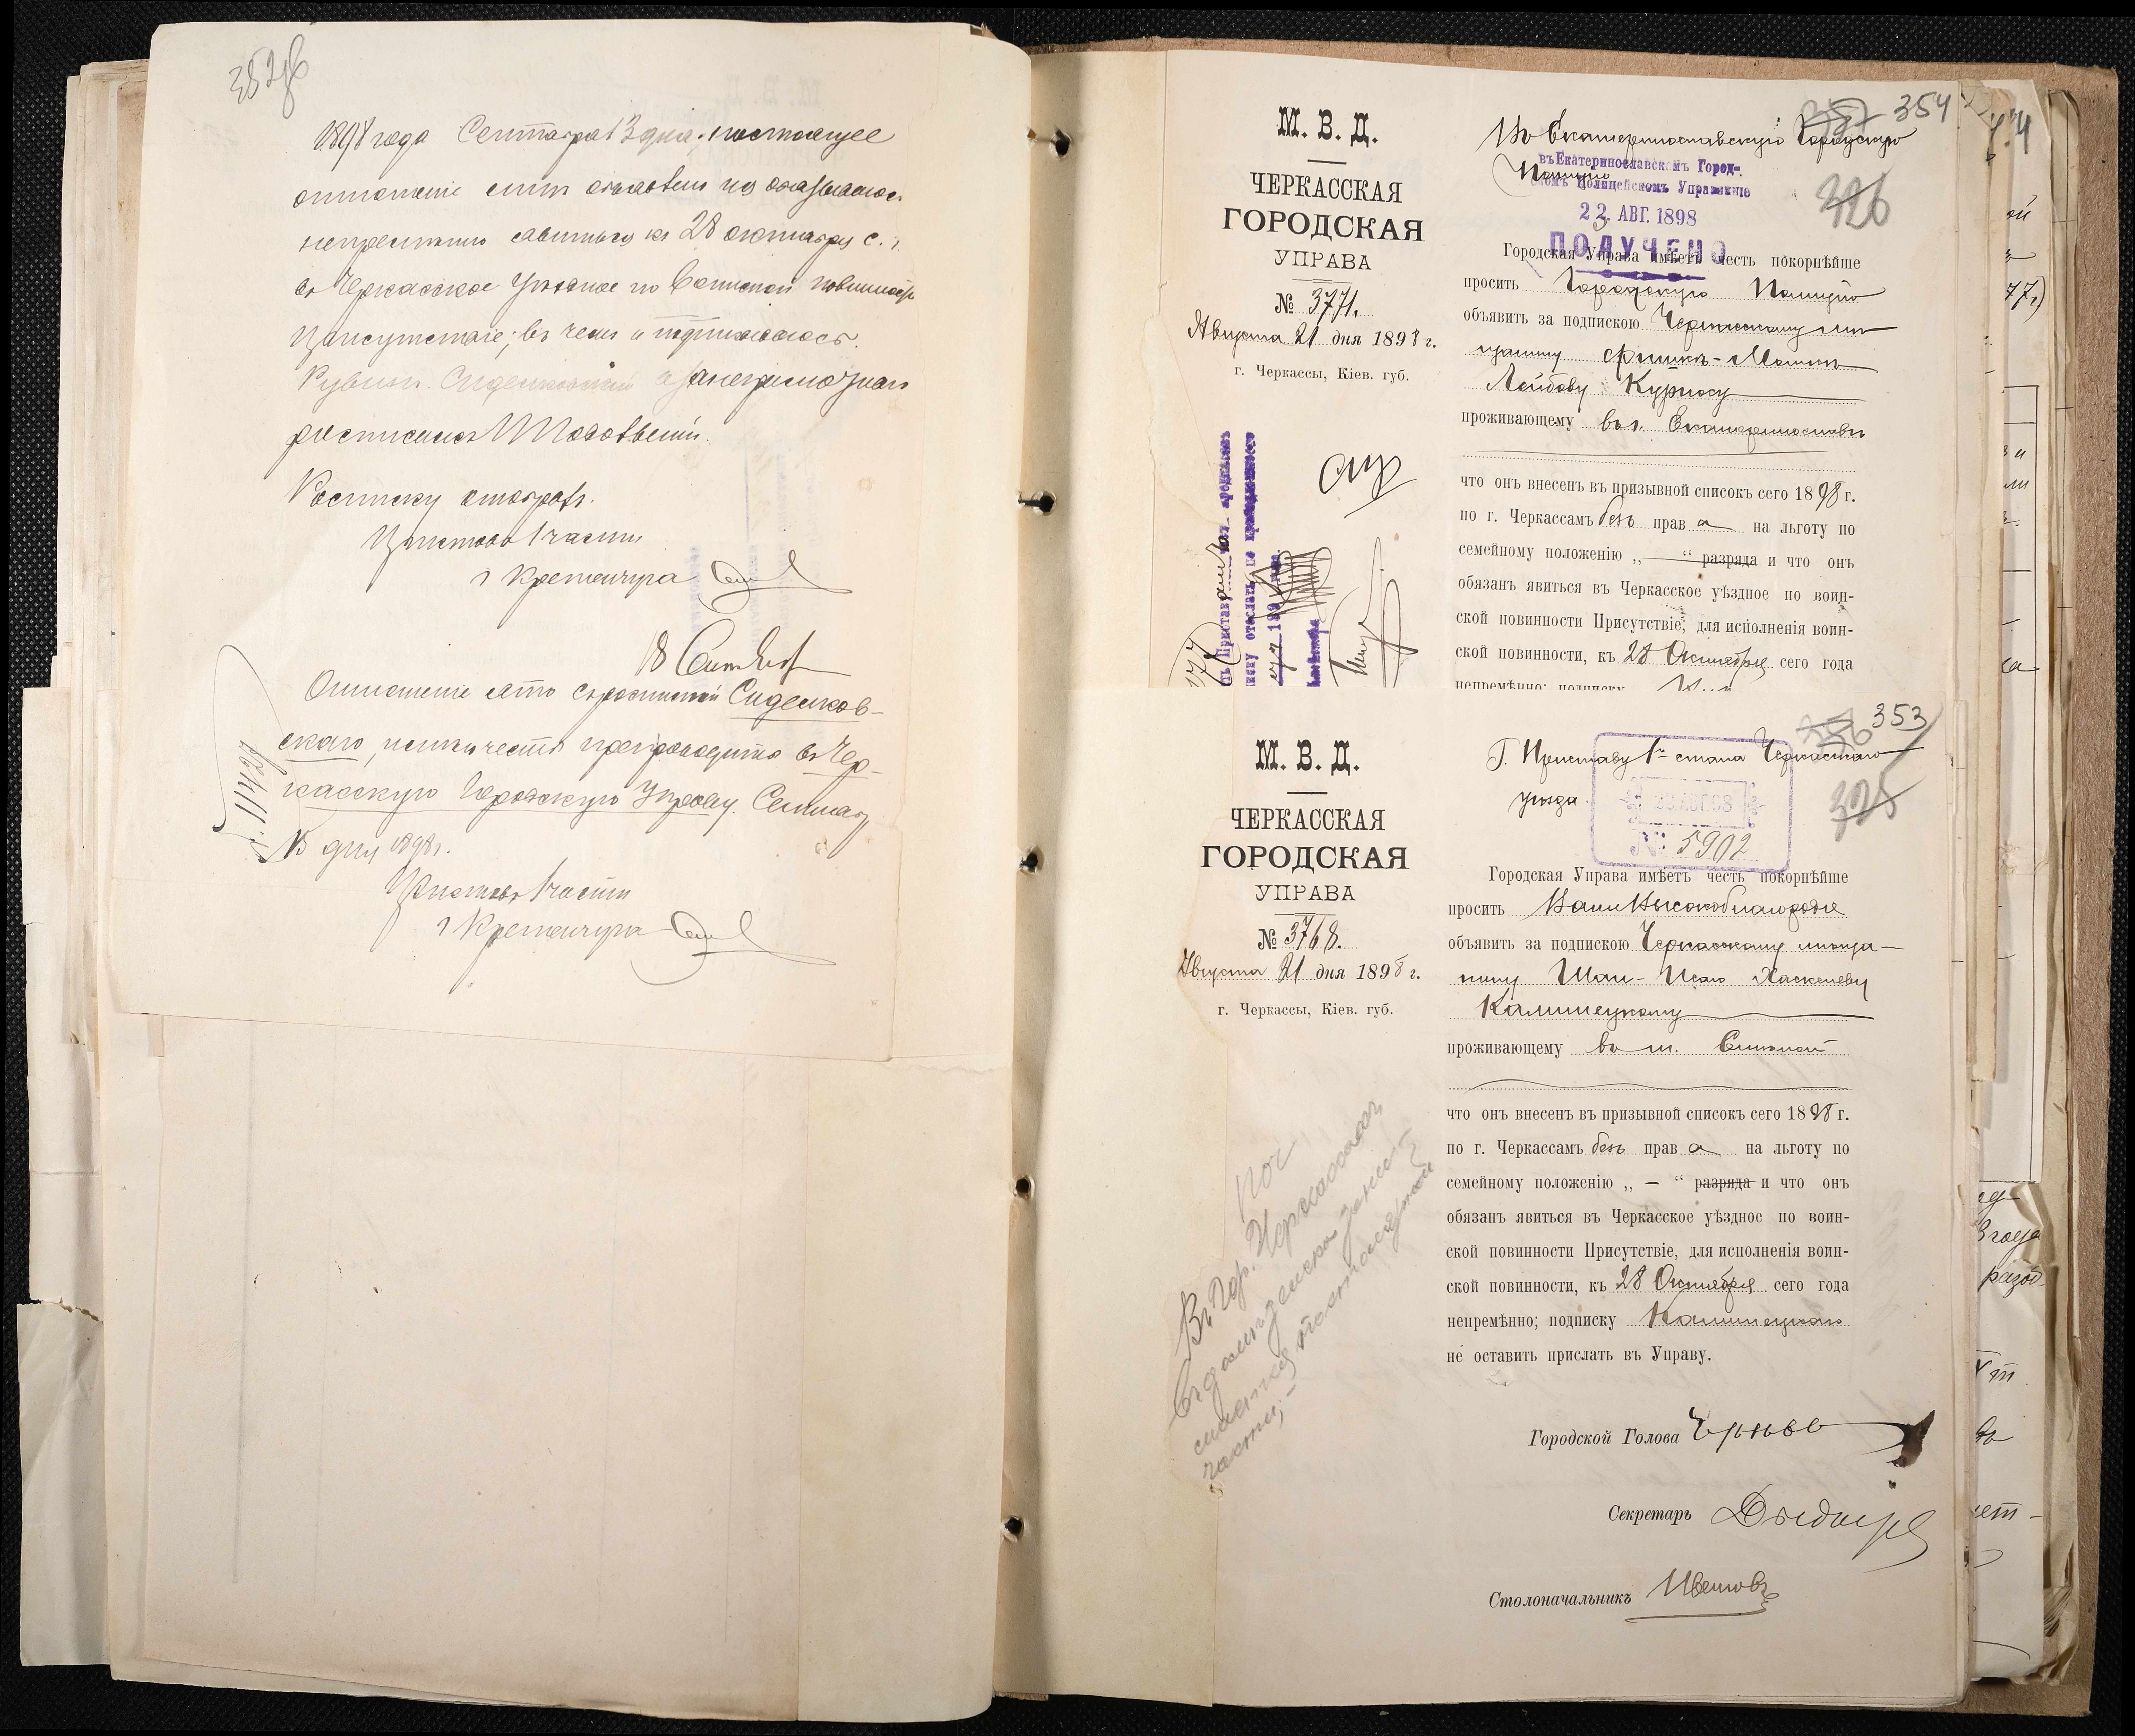 352об
1898 года Сентября 13 дня, настоящее
отношеніе мнѣ объявлено и я обязываюсь
непремѣнно явиться къ 28 октября с. г.
въ Черкасское уѣздное по воинской повинности
Присутствіе; въ чемъ и подписываюсь.
Рувинъ Сиденковскій а за неграмотнаго
росписался
Росписку отобралъ.
Приставъ 1 части
г Кременчуга
18 Сентября
Отношеніе это съ роспиской Сиденков-
скаго, полиц. части препроводить въ Чер-
касскую Городскую Управу. Сентяб.
15 дня 1898 г.
Приставъ 1 части
г Кременчуга
№ 11426
М. В. Д.
ЧЕРКАССКАЯ
ГОРОДСКАЯ
УПРАВА
№ 3771.
Августа 21 дня 1898 г.
г. Черкассы, Кіев. губ.
354
326
Въ Екатеринославскую Городскую
Полицію
въ Екатеринославскомъ Город-
скомъ Полицейскомъ Управленіе
23 АВГ. 1898
ПОЛУЧЕНО
Городская Управа имѣетъ честь покорнѣйше
просить Городскую Полицію
объявить за подпискою Черкасскому мѣ-
щанину
Лейбову Курпосу
проживающему въ г. Екатеринославѣ
что онъ внесенъ въ призывной списокъ сего 1898 г.
по г. Черкассамъ безъ права на льготу по
семейному положенію „ — “ разряда и что онъ
обязанъ явиться въ Черкасское уѣздное по воин-
ской повинности Присутствіе, для исполненія воин-
ской повинности, къ 28 Октября сего года
непремѣнно; подписку
М. В. Д.
ЧЕРКАССКАЯ
ГОРОДСКАЯ
УПРАВА
№ 3768.
Августа 21 дня 1898 г.
г. Черкассы, Кіев. губ.
353
325
Г. Приставу 1го стана Черкасскаго
уѣзда.
№ 5902
Городская Управа имѣетъ честь покорнѣйше
просить Ваше Высокоблагородіе
объявить за подпискою Черкасскому мѣща-
нину Шая-Ицко Хаскелеву
Калиницкому
проживающему въ м. Смѣлой
что онъ внесенъ въ призывной списокъ сего 1898 г.
по г. Черкассамъ безъ права на льготу по
семейному положенію „ — “ разряда и что онъ
обязанъ явиться въ Черкасское уѣздное по воин-
ской повинности Присутствіе, для исполненія воин-
ской повинности, къ 28 Октября сего года
непремѣнно; подписку Калиницкаго
не оставить прислать въ Управу.
Городской Голова
Секретарь
Столоначальникъ Ивановъ